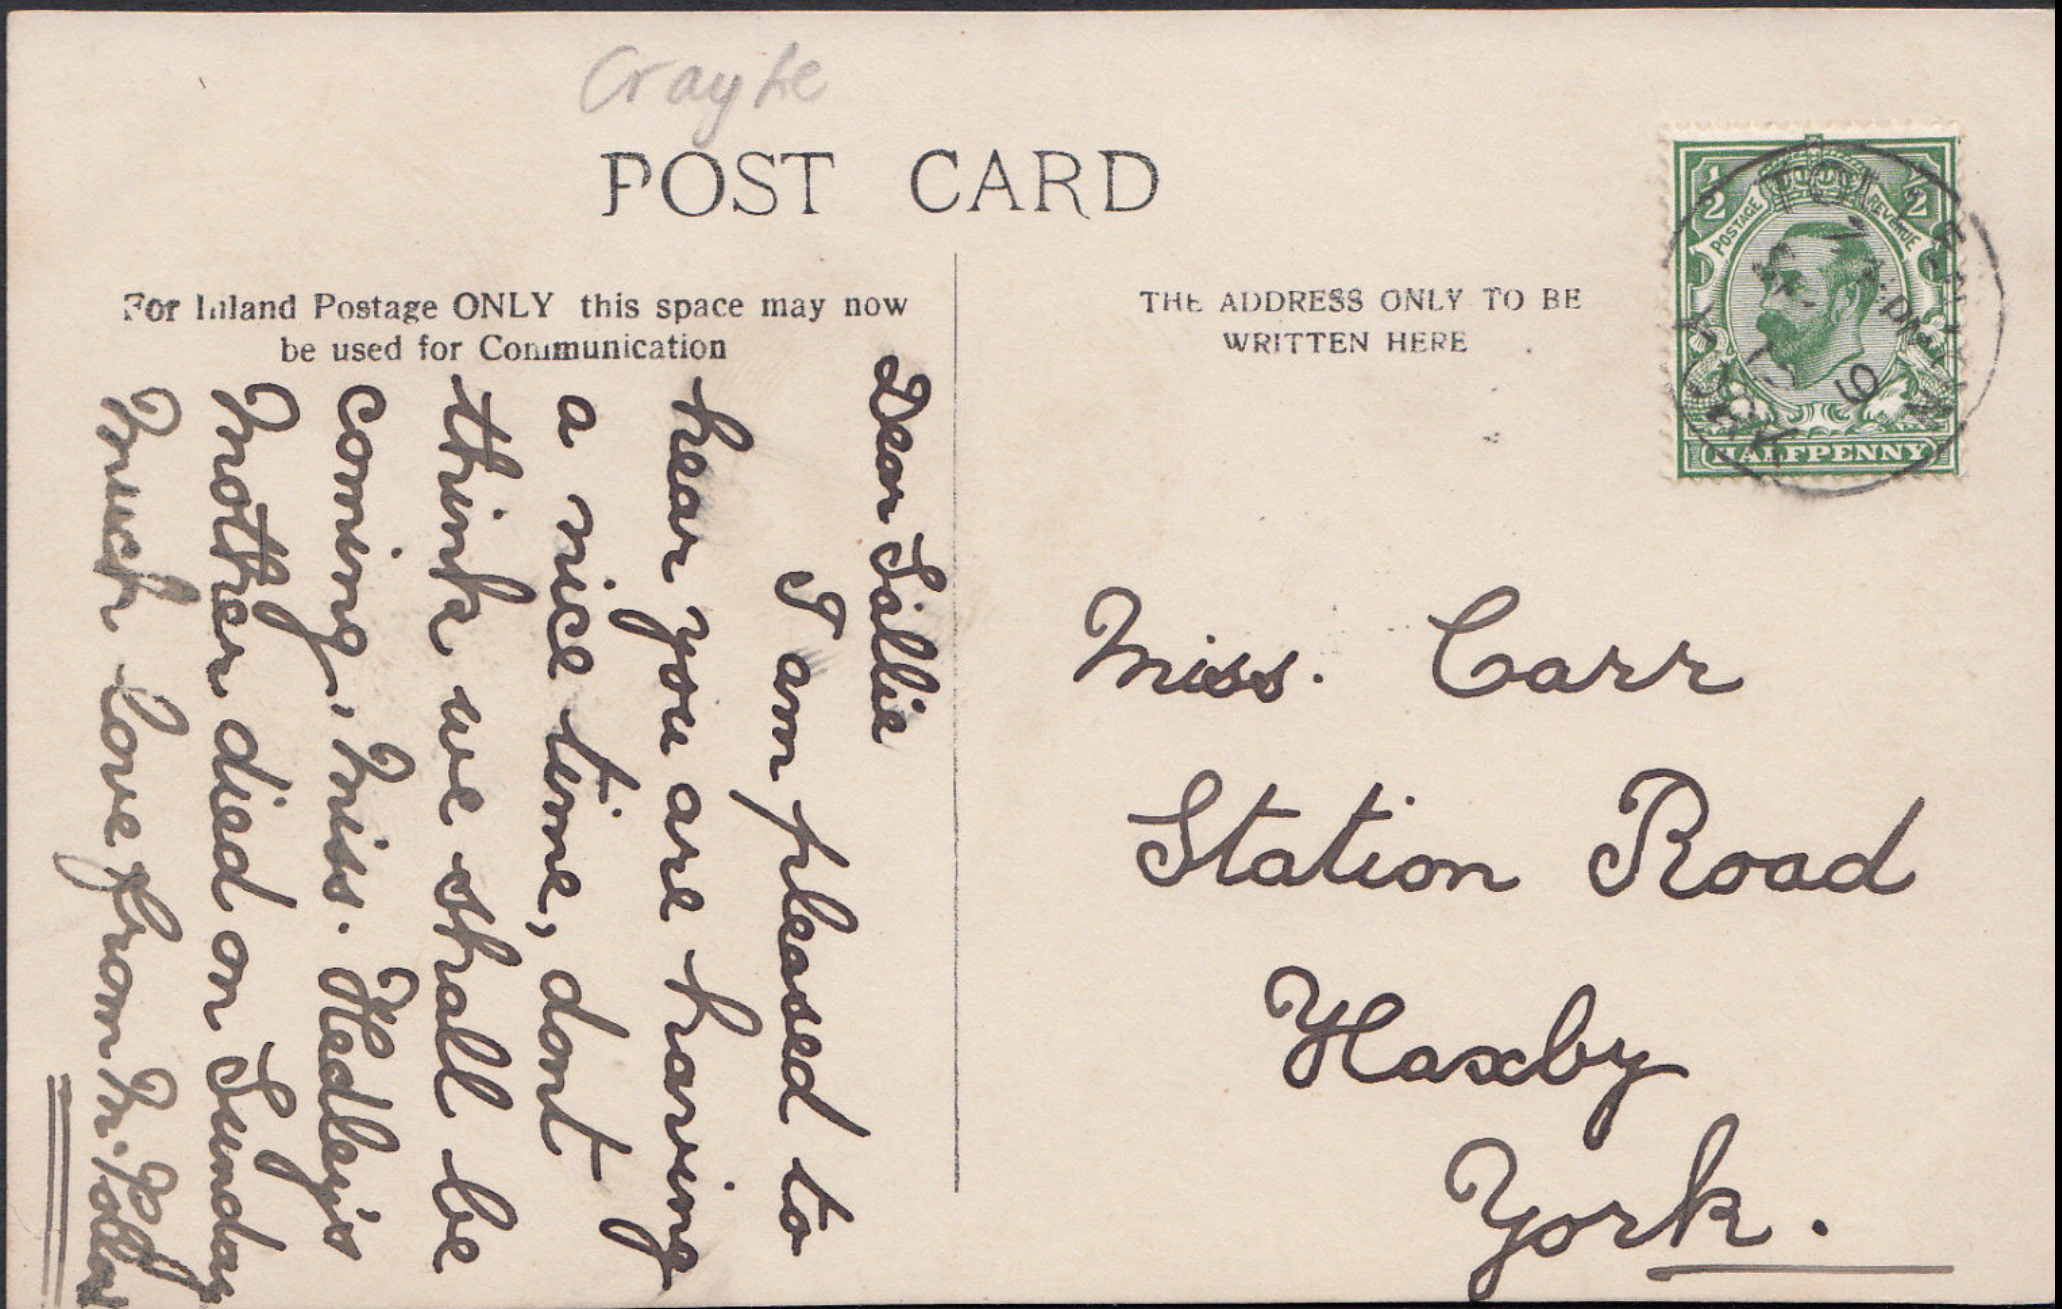 Crayke
POST CARD
For Inland Postage ONLY this space may now
be used for Communication
THE ADDRESS ONLY TO BE
WRITTEN HERE
½ ½
POSTAGE REVENUE
HALFPENNY
YORK
Dear Sallie
I am pleased to
hear you are having
a nice time, dont
think we shall be
coming, Miss. Hedley's
Mother died on Sunday
Much love from M.
Miss. Carr
Station Road
Haxby
York.